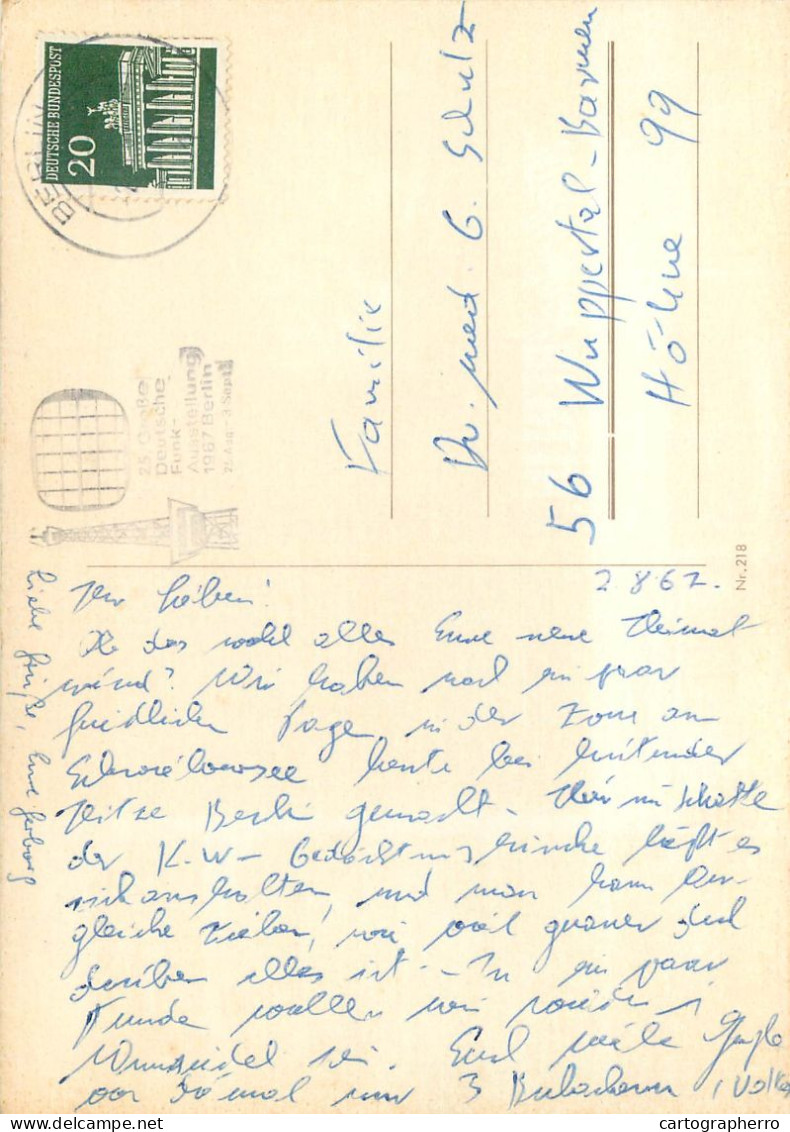 DEUTSCHE BUNDESPOST
20
BERLIN
25. Große
Deutsche
Funk-
Ausstellung
1967 Berlin
25. Aug. - 3. Sept.
Familie
Dr. med. G. Schulz
56 Wuppertal-Barmen
Höhne 99
Nr. 218
Ihr Lieben! 2.8.67.
Ob das wohl alles Eure neue Heimat
wird? Wir haben nach ein paar
friedlichen Tagen in der Zone am
Schwielowsee heute bei
Hitze Berlin gemacht. Hier im Schatten
der K.W-Gedächtniskirche läßt es
sich aushalten, und man kann Ver-
gleiche ziehen, wie viel grauer
drüben alles ist. - In ein paar
Stunde wollen wir wieder in
Wunsiedel sein. Euch viele Grüße
Liebe Grüße, Eure